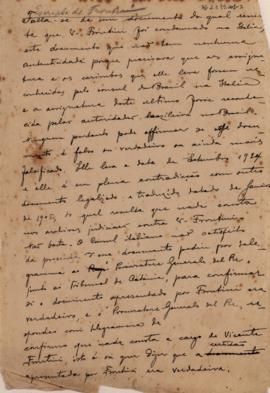 Falla se de um documento do qual resulta
que V. Frontini foi condemnado na Italia,
este documento que não tem nenhuma
autenticidade porque precisava que as assigna
tura e os carimbos que elle leva fossem re
conhecidos pelo consul do Brasil na Italia
e a assignatura deste ultimo fosse reconhe
cida pelas autoridades brasileiras no Brasil
ninguem portanto pode affirmar se o docu
mento é falso ou verdadeiro ou ainda mais
falsificado. Elle leva a data de Setembro 1924
e elle é em plena contradição com outro
documento legalizado e traduzido datado de Janeiro
de 1925, do qual resulta que nada consta
nos archivos judiciaes contra V. Frontini.
Não basta. O Consul italiano não satisfeito
de possuir um documento pediu por tele
gramma ao Procuratore Generale del Re,
junto ao Tribunal de Catania, para confirmar
si o documento apresentado por Frontini era
verdadeiro, e o Procuratore Generale del Re, re
spondeu com telegramma de
confirmo que nada consta a cargo de Vicente
Frontini, isto é ou quer dizer que a certidão
apresentada por Frontini era verdadeira.